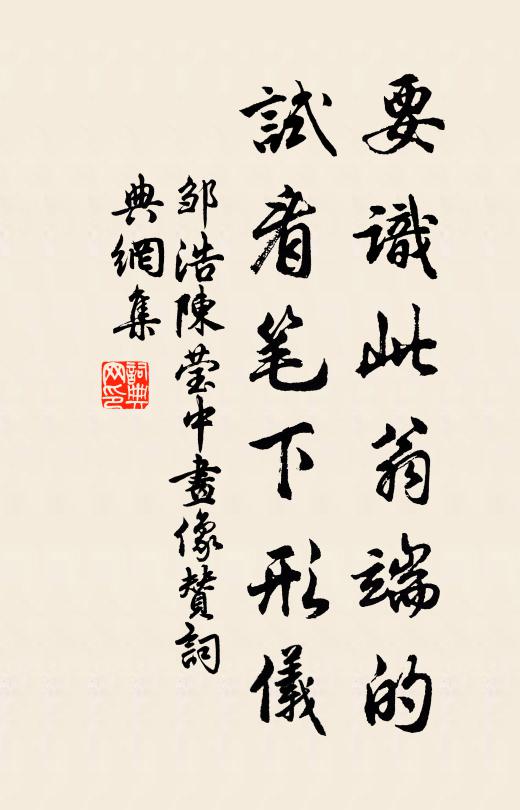 要識此翁端的
試看笔下形儀
邹浩陳莹中畫像贊詞
典網集
詞典网印